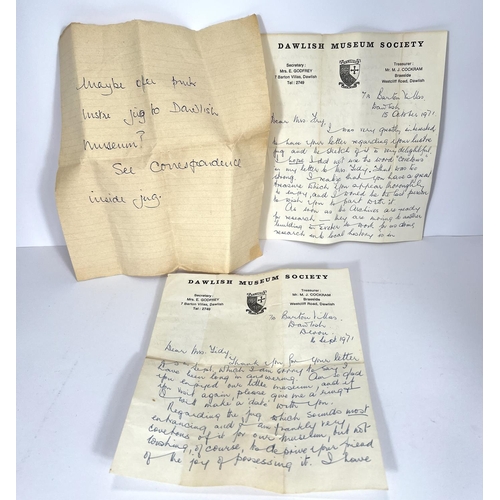 Maybe offer pink
lustre jug to Dawlish
Museum?
See Correspondence
inside jug.
DAWLISH MUSEUM SOCIETY
Secretary:
Mrs. E. GODFREY
7 Barton Villas, Dawlish
Tel: 2740
Treasurer:
Mr. M. J. COCKRAM
Braeside
Westcliff Road, Dawlish
7a Barton Villas,
Dawlish
15 October 1971
Dear Mrs. Tidy,
I was very greatly interested
to have your letter regarding your lustre
jug and the sketch of it is very delightful
I hope I did not use the word "covetous"
in my letter to Mrs Tidy. That was too
strong. I realize that you have a great
treasure which you appear thoroughly
to enjoy, and I would be the last person
to wish you to part with it.
As soon as the Archives are ready
for research - they are moving to another
building in Exeter to work for us doing
research into local history so on
DAWLISH MUSEUM SOCIETY
Secretary:
Mrs. E. GODFREY
7 Barton Villas, Dawlish
Tel: 2740
Treasurer:
Mr. M. J. COCKRAM
Braeside
Westcliff Road, Dawlish
7a Barton Villas,
Dawlish
Devon.
6 Sept 1971
Dear Mrs. Tidy,
Thank you for your letter
which I am sorry to say I
have been long in answering. Am so glad
you enjoyed our little museum, and if
you visit again please give me a ring &
I will make a date with you.
Regarding the jug which sounds most
entrancing, and I am frankly very
covetous of it for our Museum, but not
wishing, of course, to deprive your friend
of the joy of possessing it. I have